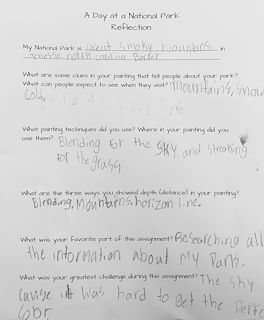 A Day at a National Park
Reflection
My National Park is Great Smoky Mountains in
north carolina Border
What are some clues in your painting that tell people about your park?
What can people expect to see when they visit? Mountains, snow
Cold
here
What painting techniques did you use? Where in your painting did you
use them? Blending for the sky and streaking
for the grass
What are the three ways you showed depth (distance) in your painting?
Blending, Mountains, horizon line.
What was your favorite part of this assignment? Researching all
the information about My Park.
What was your greatest challenge during this assignment? The sky
cause it was hard to get the perfe
color